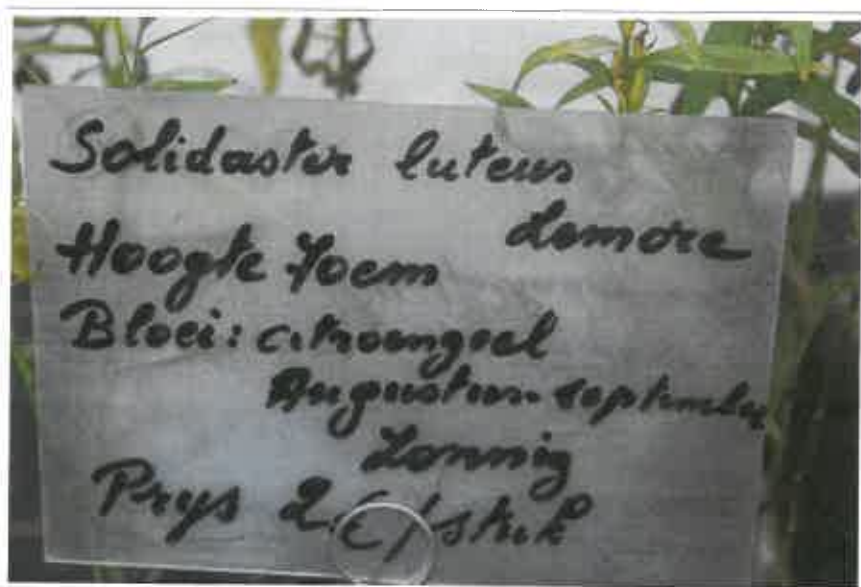 Solidaster luteus
Lemore
Hoogte 70cm
Bloei: citroengeel
Augustus-september
Zonnig
Prys 2 €/stuk